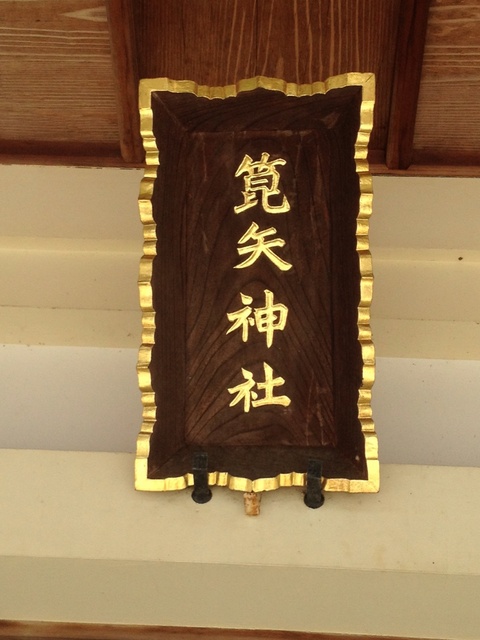 箟矢神社